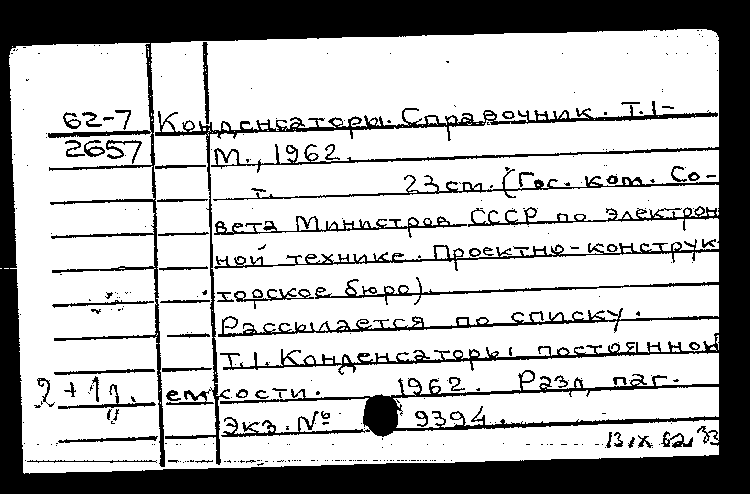 62-7 Конденсаторы. Справочник. Т.1-
2657 М., 1962.
т. 23 cm. (Гос. ком. Со-
вета Министров СССР по электрон
ной технике. Проектно-конструк
торское бюро).
Рассылается по списку.
Т.1. Конденсаторы постоянной
2+1д. емкости. 1962. Разд. паг.
Экз. № 9394.
13/IX 62